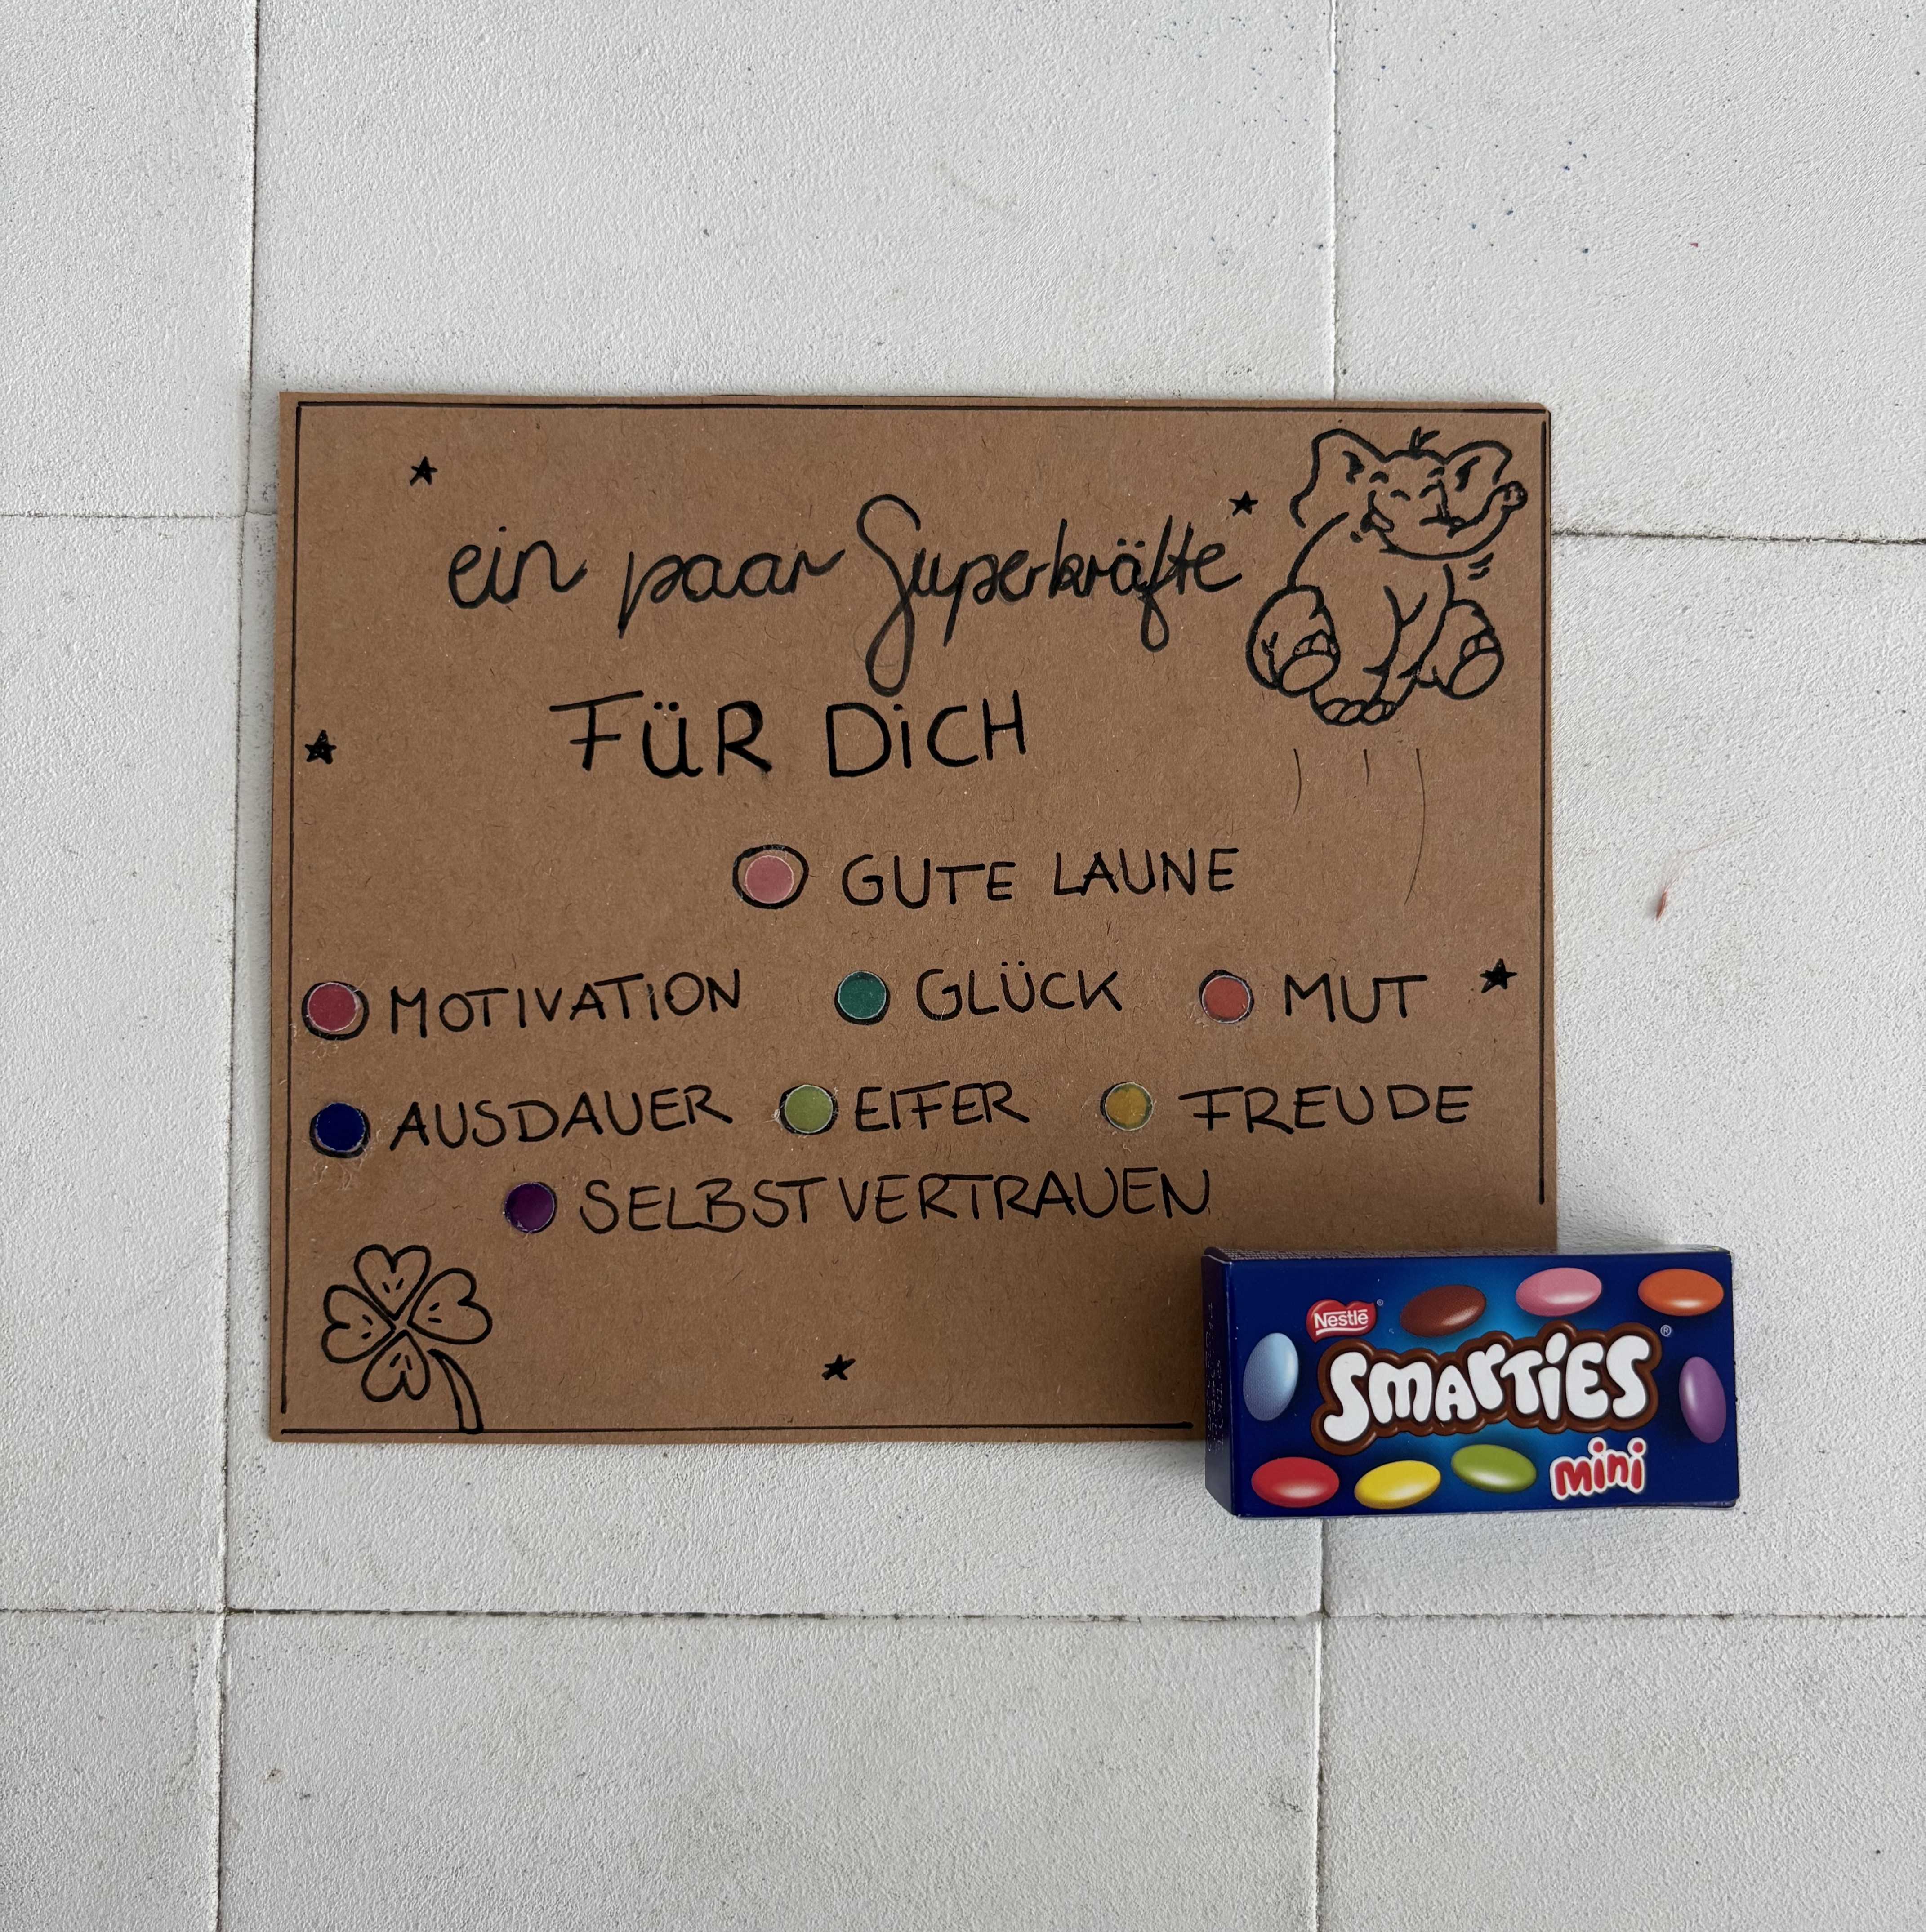 ein paar Superkräfte
FÜR DiCH
GUTE LAUNE
MOTIVATiON GLÜCK MUT
AUSDAUER EIFER FREUDE
SELBSTVERTRAUEN
Nestlé
SMARTiES
mini